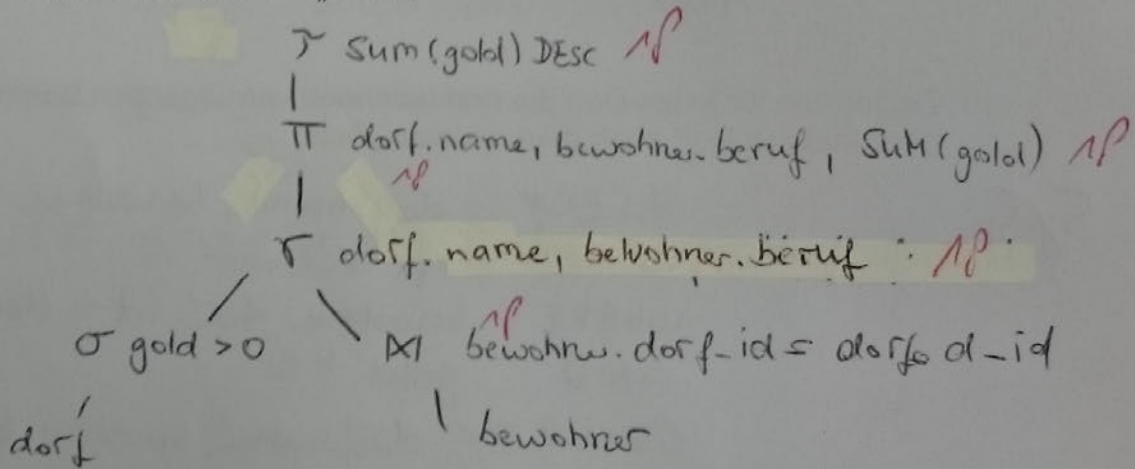 τ Sum(gold) DESC 1P
π dorf.name, bewohner.beruf, SUM(gold) 1P
1P
γ dorf.name, bewohner.beruf 1P
1P
σ gold > 0 ⋈ bewohner.dorf_id = dorf.d_id
dorf bewohner